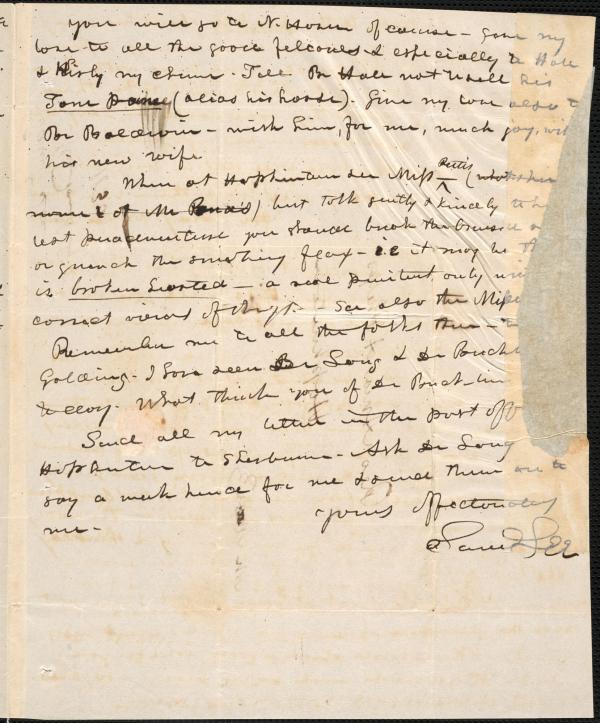 you will go to N. Haven of course - give my
love to all the good fellows & especially to Hale
& Kirby my chum - Tell Br Hale not to sell his
Tom (alias his horse). Give my love also to
Br Baldwin - wish him, for me, much joy, with
his new wife
When at Hopkinton see Miss Pettis (what's her
name at Mr ) but talk gently & kindly to her
lest peradventure you should break the bruised
or quench the smoking flax - it may be
is broken hearted - a real penitent only
correct views of things - See also the
Remember me to all the folks there -
Golding - I have seen Br Long & Dr
to day. What think you of Dr
Send all my letters in the post off
Hopkinton to Sherburne - Ask Dr Long
say a week hence for me & send them on to
me -
yours affectionately
Sam Lee